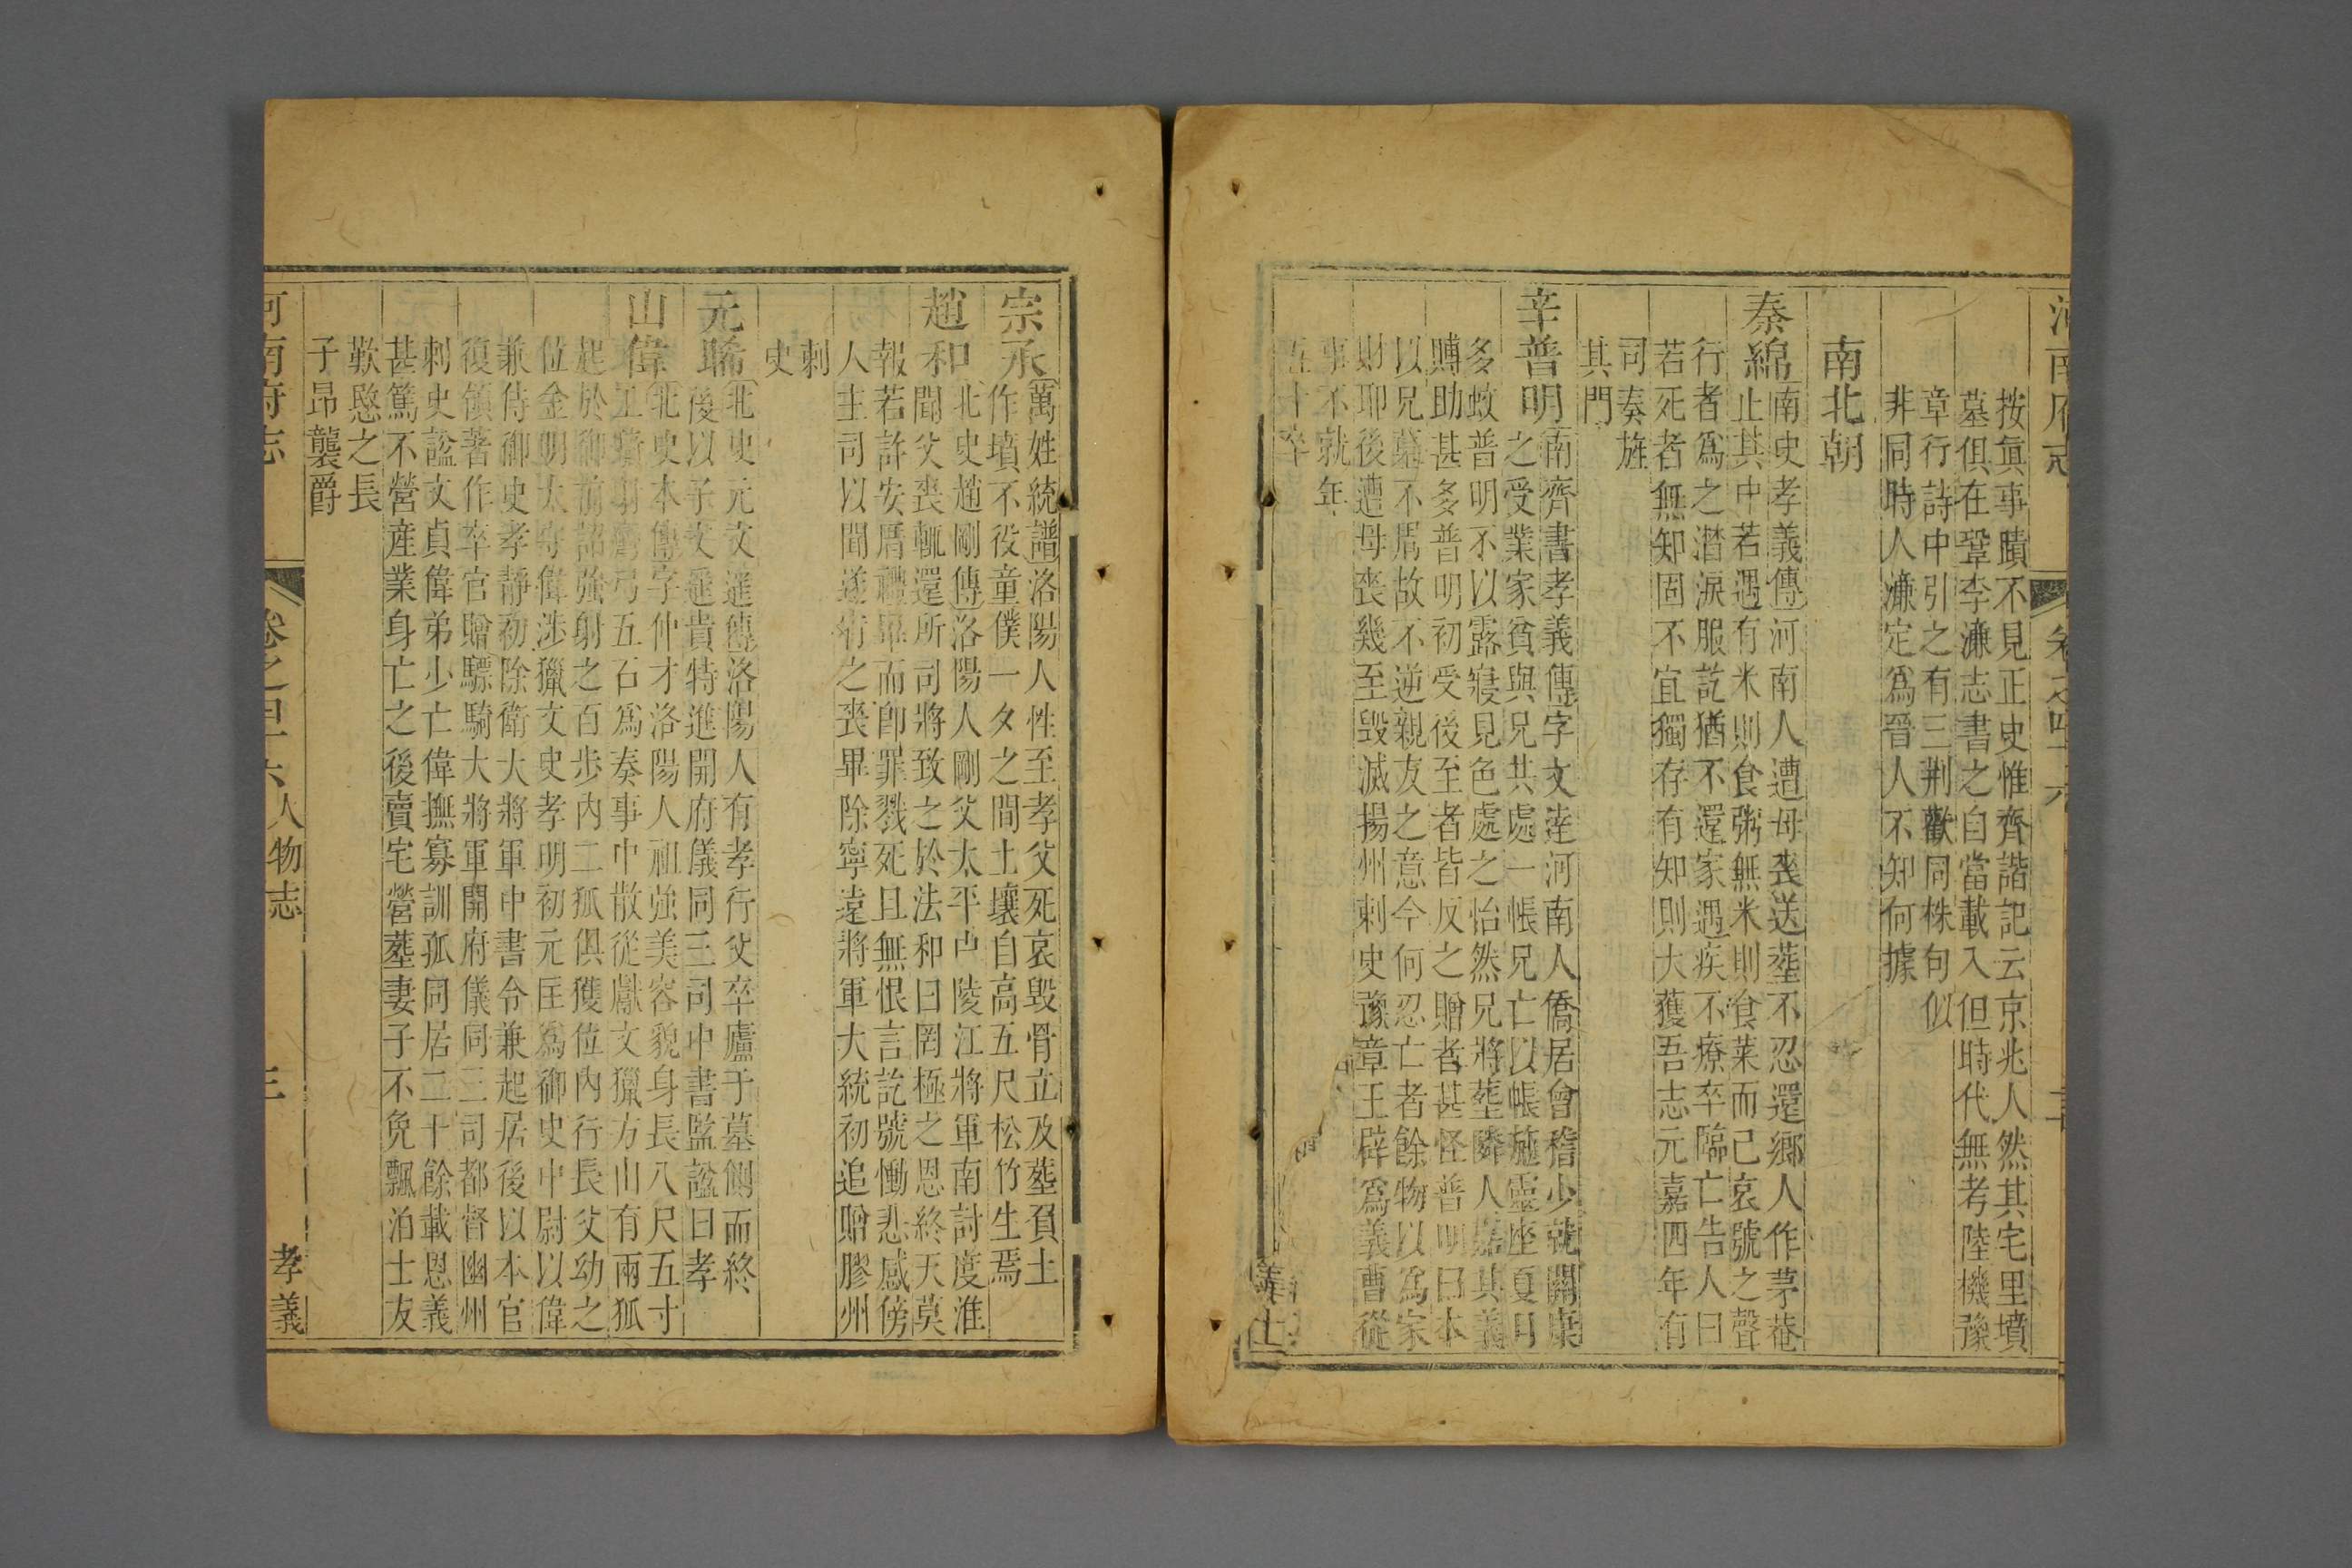 按眞事蹟不見正史惟齊諧記云京兆人然其宅里墳
墓俱在鞏李濂志書之自當載入但時代無考陸機豫
章行詩中引之有三荆歡同株句似
非同時人濂定爲晉人不知何據
南北朝
秦綿
南史孝義傳河南人遭母喪送塟不忍還鄉人作茅菴
止其中若遇有米則食粥無米則食菜而已哀號之聲
行者爲之潸淚服訖猶不還家遇疾不療卒臨亡告人曰
若死者無知固不宜獨存有知則大獲吾志元嘉四年有
司奏旌
其門
辛普明
南齊書孝義傳字文達河南人僑居會稽少就關康
之受業家貧與兄共處一帳兄亡以帳施靈座夏月
多蚊普明不以露寢見色處之怡然兄將塟隣人嘉其義
賻助甚多普明初受後至者皆反之贈者甚怪普明曰本
以兄墓不周故不逆親友之意今何忍亡者餘物以爲家
財耶後遭母喪幾至毀滅揚州刺史豫章王辟爲議曹從
事不就年
五十卒
宗承
萬姓統譜洛陽人性至孝父死哀毀骨立及塟負土
作墳不役童僕一夕之間土壤自高五尺松竹生焉
趙和
北史趙剛傳洛陽人剛父太平中陵江將軍南討度淮
聞父喪輒還所司將致之於法和曰罔極之恩終天莫
報若許安厝禮畢而卽罪戮死且無恨言訖號慟悲感傍
人主司以聞遂宥之喪畢除寧遠將軍大統初追贈膠州
刺
史
元晞
北史元文遥傳洛陽人有孝行父卒廬于墓側而終
後以子文遥貴特進開府儀同三司中書監諡曰孝
山偉
北史本傳字仲才洛陽人祖強美容貌身長八尺五寸
工騎射彎弓五石爲奏事中散從獻文獵方山有兩狐
起於御前詔強射之百歩內二狐俱獲位內行長父幼之
位金明太守偉涉獵文史孝明初元匡爲御史中尉以偉
兼侍御史孝靜初除衛大將軍中書令兼起居後以本官
復領著作卒官贈驃騎大將軍開府儀同三司都督幽州
刺史諡文貞偉弟少亡偉撫寡訓孤同居二十餘載恩義
甚篤不營産業身亡之後賣宅營塟妻子不免飄泊士友
歎愍之長
子昂襲爵
河南府志 卷之四十六 人物志 孝義